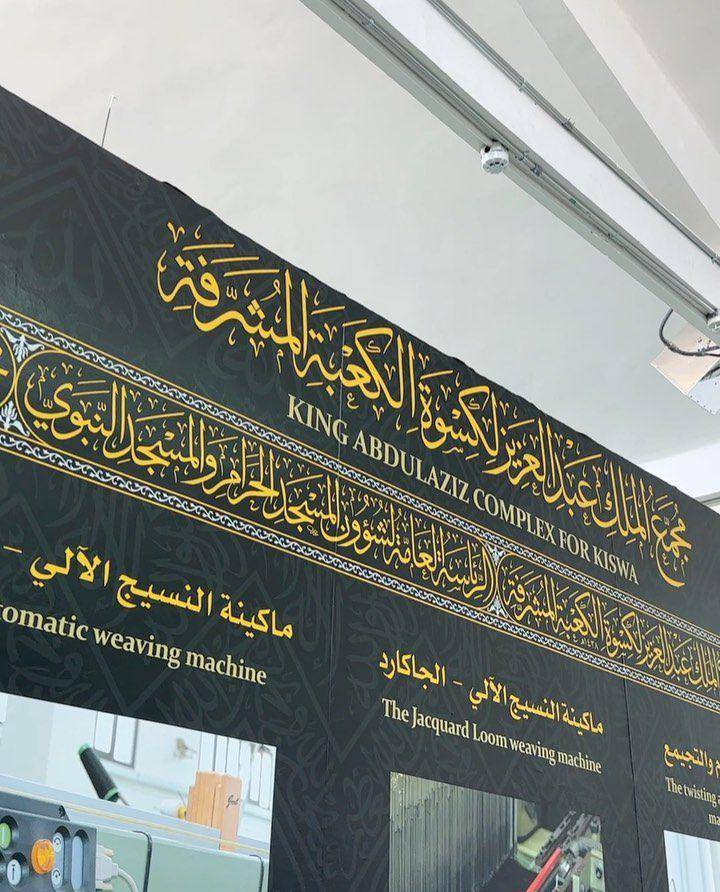 مجمع الملك عبد العزيز لكسوة الكعبة المشرفة
KING ABDULAZIZ COMPLEX FOR KISWA
الملك عبد العزيز لكسوة الكعبة المشرفة
الرئاسة العامة لشؤون المسجد الحرام والمسجد النبوي
والتجميع
The twisting
ماكينة النسيج الآلي - الجاكارد
The Jacquard Loom weaving machine
ماكينة النسيج الآلي -
tomatic weaving machine